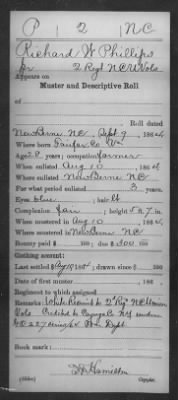 P 2 NC
Richard W Phillips
Pr 2 Regt NC U Vols
Appears on
Muster and Descriptive Roll
of
Roll dated
New Berne NC, Sept 9, 1864
Where born Fairfax Co Va
Age 28 years; occupation farmer
When enlisted Aug 10, 1864
Where enlisted New Berne NC
For what period enlisted 3 years.
Eyes blue; hair lt
Complexion fair; height 5 ft. 7 in.
When mustered in Aug 10, 1864
Where mustered in New Berne NC
Bounty paid $ 100; due $ 200 100
Clothing account:
Last settled Aug 10, 1864; drawn since $ 100
Date of first muster, 186
which to which assigned
Remarks: White Recruit to 2d Regt NC Union
Vols Credited to Cayuga Co NY under
GO 227 War Dept
Book mark:
Hamilton
Copyist.